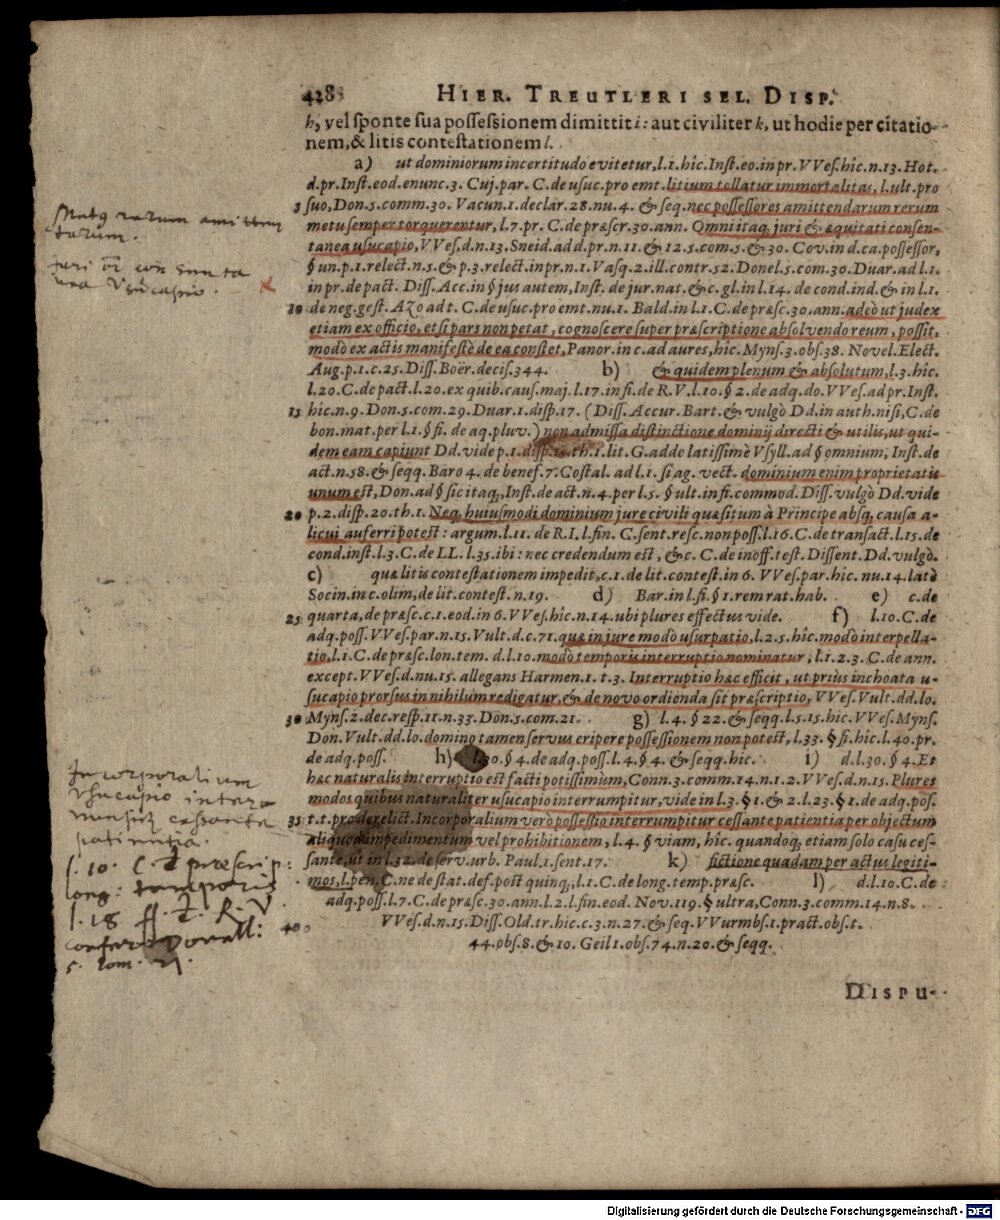 428 HIER. TREUTLERI SEL. DISP.
h, vel sponte sua possessionem dimittit i: aut civiliter k, ut hodie per citatio-
nem, & litis contestationem l.
a) ut dominiorum incertitudo evitetur, l.1. hîc. Inst. eo. in pr. VVes. hîc. n. 13. Hot.
d. pr. Inst. eod. enunc. 3. Cuj. par. C. de usuc. pro emt. litium tollatur immortalitas, l. ult. pro
5 suo, Don. 5. comm. 30. Vacun. 1. declar. 28. nu. 4. & seq. nec possessores amittendarum rerum
metu semper torquerentur, l. 7. pr. C. de præscr. 30. ann. Omni itaq; juri & æquitati consen-
tanea usucapio, VVes. d. n. 13. Sneid. ad d. pr. n. 11. & 12. 5. com. 5. & 30. Cov. in d. ca. possessor,
§ un. p. 1. relect. n. 5. & p. 3. relect. in pr. n. 1. Vasq. 2. ill. contr. 52. Donel. 5. com. 30. Duar. ad l. 1.
in pr. de pact. Diss. Acc. in § jus autem, Inst. de jur. nat. & c. gl. in l. 14. de cond. ind. & in l. 1.
10 de neg. gest. Azo ad t. C. de usuc. pro emt. nu. 1. Bald. in l. 1. C. de præsc. 30. ann. adeò ut judex
etiam ex officio, etsi pars non petat, cognoscere super præscriptione absolvendo reum, possit,
modò ex actis manifestè de ea constet, Panor. in c. ad aures, hîc. Myns. 3. obs. 38. Novel. Elect.
Aug. p. 1. c. 25. Diss. Boër. decis. 344. b) & quidem plenum & absolutum, l. 3. hîc.
l. 20. C. de pact. l. 20. ex quib. caus. maj. l. 17. in fi. de R. V. l. 10. § 2. de adq. do. VVes. ad pr. Inst.
15 hic. n. 9. Don. 5. com. 29. Duar. 1. disp. 17. (Diss. Accur. Bart. & vulgò Dd. in auth. nisi, C. de
bon. mat. per l. 1. § fi. de aq. pluv.) non admissa distinctione dominij directi & utilis, ut qui-
dem eam capiunt Dd. vide p. 1. disp. 14. th. 1. lit. G. adde latissimè Vsyll. ad § omnium, Inst. de
act. n. 58. & seqq. Baro 4. de benef. 7. Costal. ad l. 1. si ag. vect. dominium enim proprietatis
unum est, Don. ad § sic itaq;, Inst. de act. n. 4. per l. 5. § ult. in fi. commod. Diss. vulgò Dd. vide
20 p. 2. disp. 20. th. 1. Neq; huiusmodi dominium jure civili quæsitum à Principe absq; causa a-
licui auferri potest: argum. l. 11. de R. I. l. fin. C. sent. resc. non poss. l. 16. C. de transact. l. 15. de
cond. inst. l. 3. C. de LL. l. 35. ibi: nec credendum est, &c. C. de inoff. test. Dissent. Dd. vulgò.
c) quæ litis contestationem impedit, c. 1. de lit. contest. in 6. VVes. par. hîc. nu. 14. latè
Socin. in c. olim, de lit. contest. n. 19. d) Bar. in l. fi. § 1. rem rat. hab. e) c. de
25 quarta, de præsc. c. 1. eod. in 6. VVes. hîc. n. 14. ubi plures effectus vide. f) l. 10. C. de
adq. poss. VVes. par. n. 15. Vult. d. c. 71. quæ in jure modò usurpatio, l. 2. 5. hîc. modò interpella-
tio, l. 1. C. de præsc. lon. tem. d. l. 10. modò temporis interruptio nominatur, l. 1. 2. 3. C. de ann.
except. VVes. d. nu. 15. allegans Harmen. 1. t. 3. Interruptio hæc efficit, ut priùs inchoata u-
sucapio prorsus in nihilum redigatur, & de novo ordienda sit præscriptio, VVes. Vult. dd. lo.
30 Myns. 2. dec. resp. 11. n. 33. Don. 5. com. 21. g) l. 4. § 22. & seqq. l. 5. 15. hic. VVes. Myns.
Don. Vult. dd. lo. domino tamen servus eripere possessionem non potest, l. 33. § fi. hic. l. 40. pr.
de adq. poss. h) l. 30. § 4. de adq. poss. l. 4. § 4. & seqq. hic. i) d. l. 30. § 4. Et
hæc naturalis interruptio est facti potissimùm, Conn. 3. comm. 14. n. 1. 2. VVes. d. n. 15. Plures
modos quibus naturaliter usucapio interrumpitur, vide in l. 3. § 1. & 2. l. 23. § 1. de adq. pos.
35 t. t. pro derelict. Incorporalium verò possessio interrumpitur cessante patientia per objectum
aliquod impedimentum vel prohibitionem, l. 4. § viam, hîc. quandoq; etiam solo casu ces-
sante, ut in l. 32. de serv. urb. Paul. 1. sent. 17. k) fictione quadam per actus legiti-
mos, l. pen. C. ne de stat. def. post quinq;, l. 1. C. de long. temp. præsc. l) d. l. 10. C. de
adq. poss. l. 7. C. de præsc. 30. ann. l. 2. l. fin. eod. Nov. 119. § ultra, Conn. 3. comm. 14. n. 8.
40 VVes. d. n. 15. Diss. Old. tr. hic. c. 3. n. 27. & seq. VVurmbs. 1. pract. obs. t.
44. obs. 8. & 10. Geil 1. obs. 74. n. 20. & seqq.
DISPU-
Metus rerum amitten
darum.
Juri
usucapio.
Incorporalium
Usucapio interr
cessante
patientia.
l. 10. C. præscrip:
long: temporis
l. 18 ff. R. V.
confer Donell:
5. com. 21.